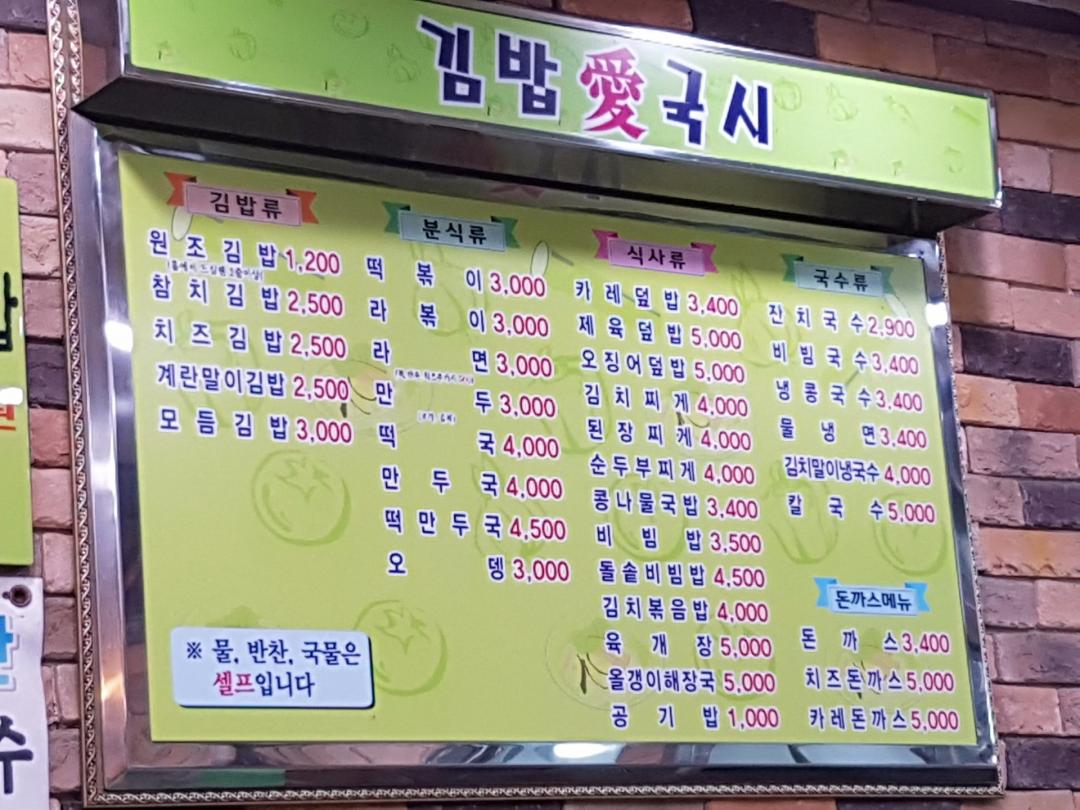 김밥愛국시
김밥류
원조김밥 1,200
참치김밥 2,500
치즈김밥 2,500
계란말이김밥 2,500
모듬김밥 3,000
분식류
떡볶이 3,000
라볶이 3,000
라면 3,000
만두 3,000
떡국 4,000
만두국 4,000
떡만두국 4,500
오뎅 3,000
식사류
카레덮밥 3,400
제육덮밥 5,000
오징어덮밥 5,000
김치찌게 4,000
된장찌게 4,000
순두부찌게 4,000
콩나물국밥 3,400
비빔밥 3,500
돌솥비빔밥 4,500
김치볶음밥 4,000
육개장 5,000
올갱이해장국 5,000
공기밥 1,000
국수류
잔치국수 2,900
비빔국수 3,400
냉콩국수 3,400
물냉면 3,400
김치말이냉국수 4,000
칼국수 5,000
돈까스메뉴
돈까스 3,400
치즈돈까스 5,000
카레돈까스 5,000
※ 물, 반찬, 국물은
셀프입니다
수